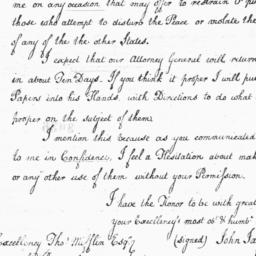 me on any occasion that may offer to restrain & pu
those who attempt to disturb the Peace or violate the
of any of the the other States.
I expect that our Attorney General will return
in about Ten Days. If you think it proper I will put
Papers into his Hands with Directions to do what
proper on the subject of them
I mention this because as you communicated
to me in Confidence, I feel a Hesitation about mak
or any other use of them without your Permission.
I have the Honor to be with great
your Excellency's most obt & humb
Excellency Thos Mifflin Esqr (signed) John Ja